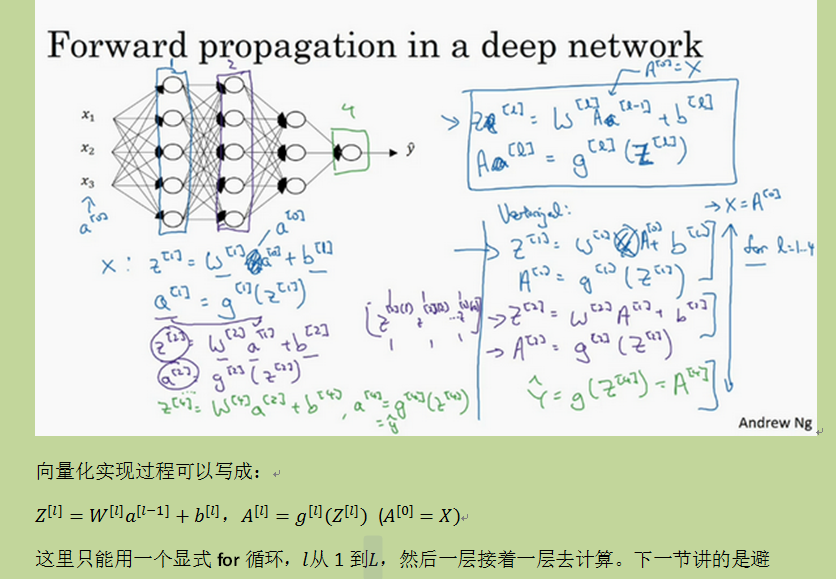 Forward propagation in a deep network
x₁
x₂
x₃
a^[0]
1
2
4
ŷ
A^[0] = X
Z^[l] = W^[l] A^[l-1] + b^[l]
A^[l] = g^[l](Z^[l])
a^[0]
X: z^[1] = W^[1] a^[0] + b^[1]
a^[1] = g^[1](z^[1])
z^[2] = W^[2] a^[1] + b^[2]
a^[2] = g^[2](z^[2])
z^[4] = W^[4] a^[3] + b^[4], a^[4] = g^[4](z^[4])
= ŷ
Vectorized:
→ X = A^[0]
Z^[1] = W^[1] A^[0] + b^[1]
A^[1] = g^[1](Z^[1])
→ Z^[2] = W^[2] A^[1] + b^[2]
→ A^[2] = g^[2](Z^[2])
Ŷ = g(Z^[4]) = A^[4]
for l=1..4
Andrew Ng
向量化实现过程可以写成:
Z^[l] = W^[l]a^[l−1] + b^[l],A^[l] = g^[l](Z^[l]) (A^[0] = X)
这里只能用一个显式 for 循环,l从 1 到L,然后一层接着一层去计算。下一节讲的是避